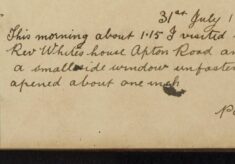 31st July 1
This morning about 1·15 I visited
Rev White's house Apton Road an
a small side window unfasten
opened about one inch
Po